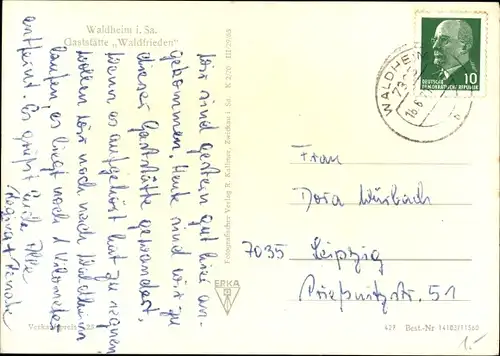 Waldheim i. Sa.
Gaststätte „Waldfrieden"
Wir sind gestern gut hier an-
gekommen. Heute sind wir zu
dieser Gaststätte gewandert.
Wenn es aufgehört hat zu regnen
wollen wir noch nach Waldheim
laufen, es liegt noch 1 Kilometer
entfernt. Es grüßt Euch Alle
Regina + Renate
III/29/63
K 2/70
Fotografischer Verlag R. Kallmer, Zwickau i. Sa.
ERKA
WALDHEIM
DEUTSCHE
DEMOKRATISCHE REPUBLIK
10
Frau
Dora Würbach
7035 Leipzig
Prießnitzstr. 51
427 Best.-Nr 14183/11560
1.-